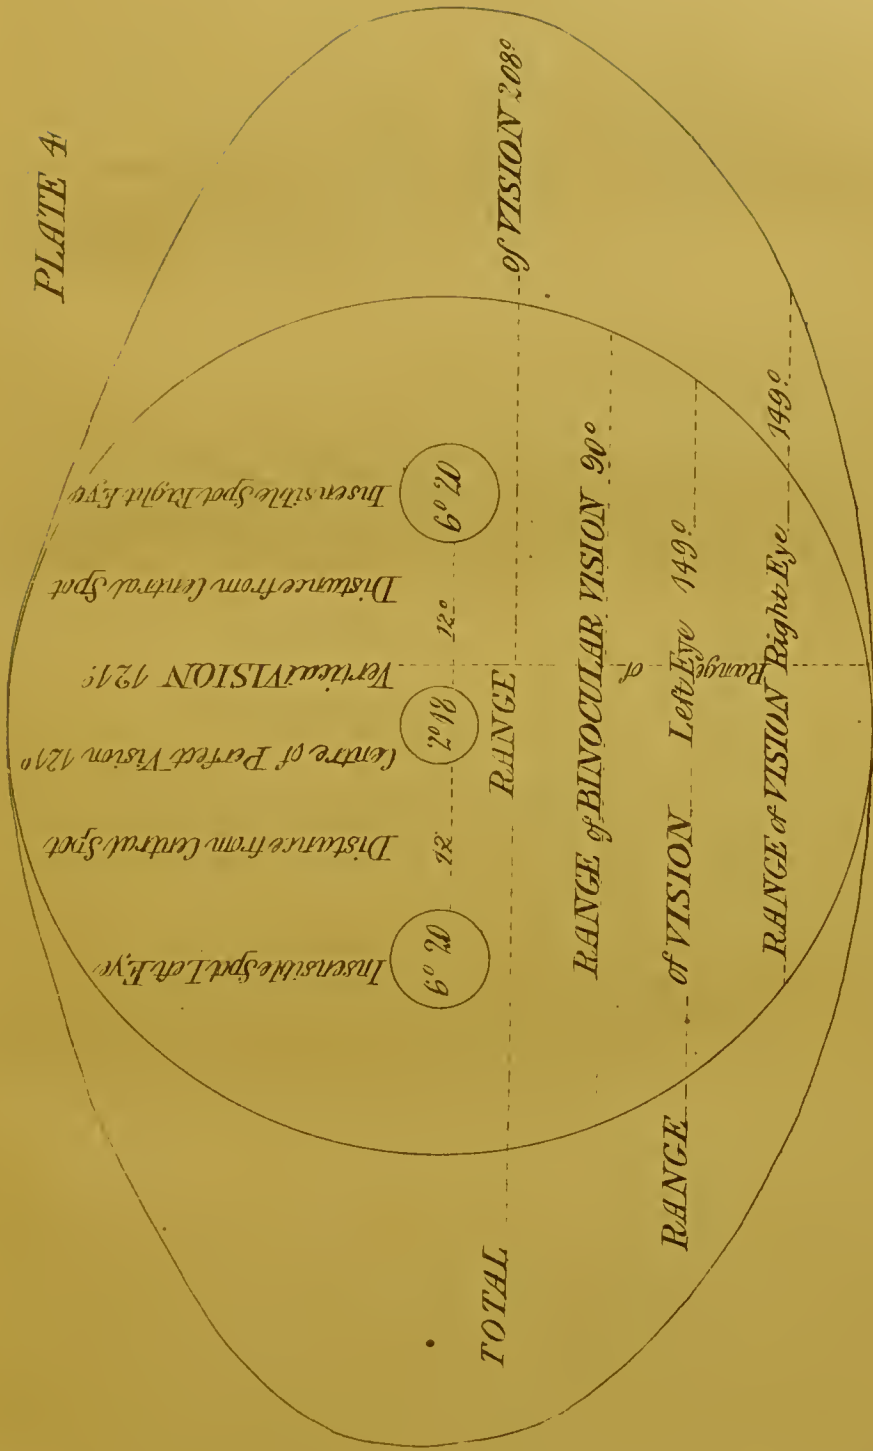 PLATE 4
Insensible Spot Left Eye
Distance from Central Spot
Centre of Perfect Vision 121°
Range of Vertical VISION 121°
Distance from Central Spot
Insensible Spot Right Eye
6° 20
12
12°
6° 20
TOTAL RANGE of VISION 208°
RANGE of BINOCULAR VISION 90°
RANGE of VISION Left Eye 149°
RANGE of VISION Right Eye 149°